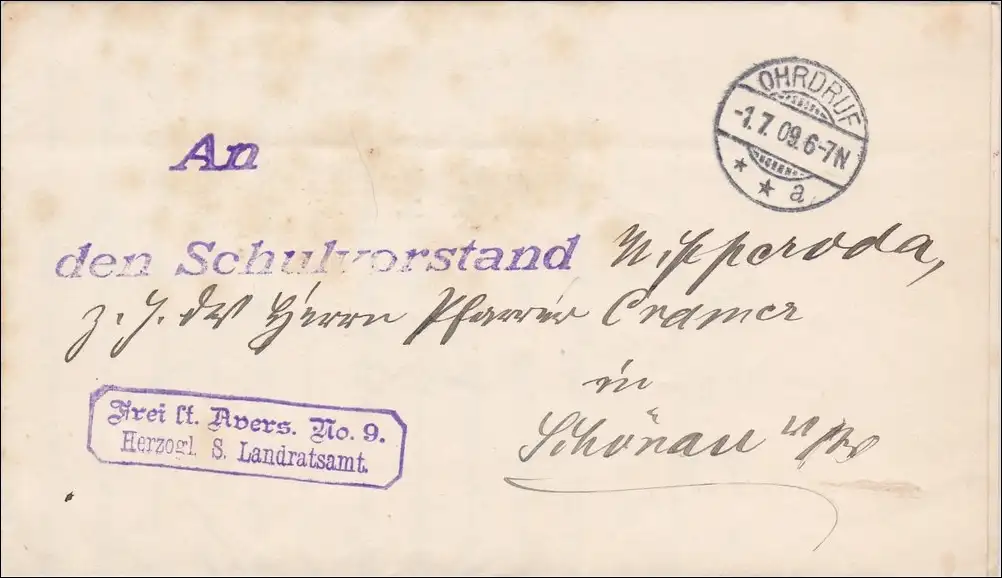 OHRDRUF
-1.7.09.6-7N
* * a
An
den Schulvorstand Wipperoda,
z. H. des Herrn Pfarrer Cramer
in
Schönau
Frei lt. Avers. No. 9.
Herzogl. S. Landratsamt.